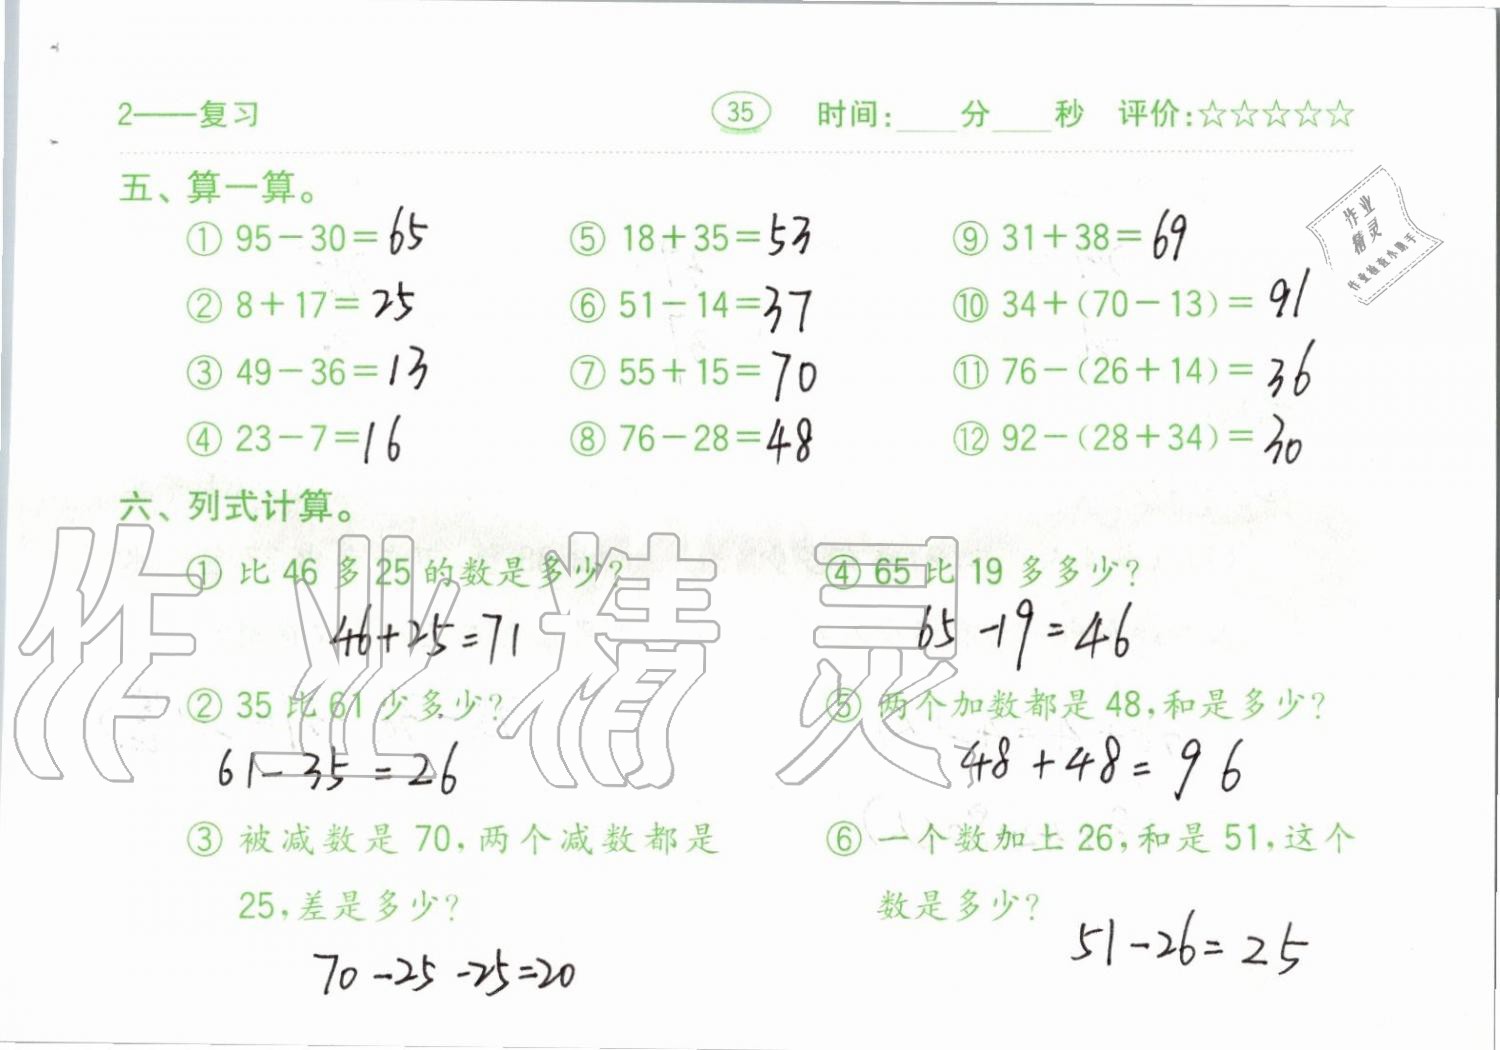 2——复习 35 时间:____分____秒 评价:☆☆☆☆☆
五、算一算。
① 95－30＝65 ⑤ 18＋35＝53 ⑨ 31＋38＝69
② 8＋17＝25 ⑥ 51－14＝37 ⑩ 34＋(70－13)＝91
③ 49－36＝13 ⑦ 55＋15＝70 ⑪ 76－(26＋14)＝36
④ 23－7＝16 ⑧ 76－28＝48 ⑫ 92－(28＋34)＝30
六、列式计算。
① 比 46 多 25 的数是多少?
46+25=71
② 35 比 61 少多少?
61-35=26
③ 被减数是 70,两个减数都是
25,差是多少?
70-25-25=20
④ 65 比 19 多多少?
65-19=46
⑤ 两个加数都是 48,和是多少?
48+48=96
⑥ 一个数加上 26,和是 51,这个
数是多少?
51-26=25
作业精灵
作业
精灵
作业检查小助手